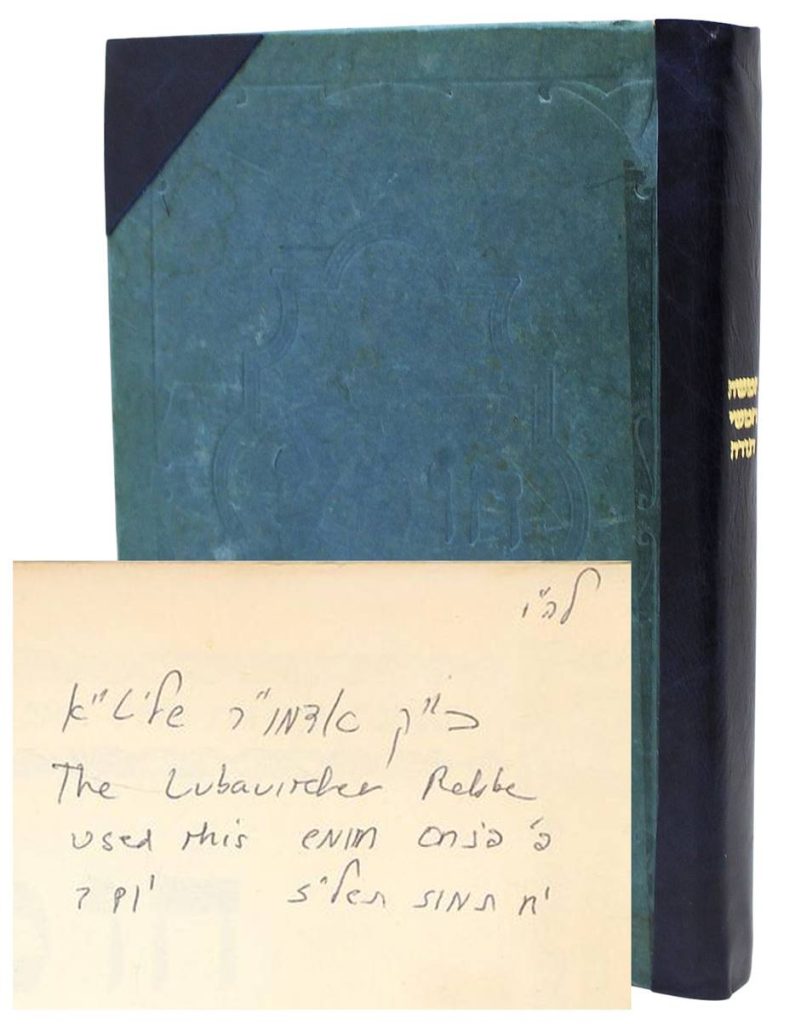 חמשה
חמשי
תורה
לה"ו
כ"ק אדמו"ר שליט"א
The Lubavitcher Rebbe
used this חומש פ' פנחס
י"ח תמוז תשל"ז